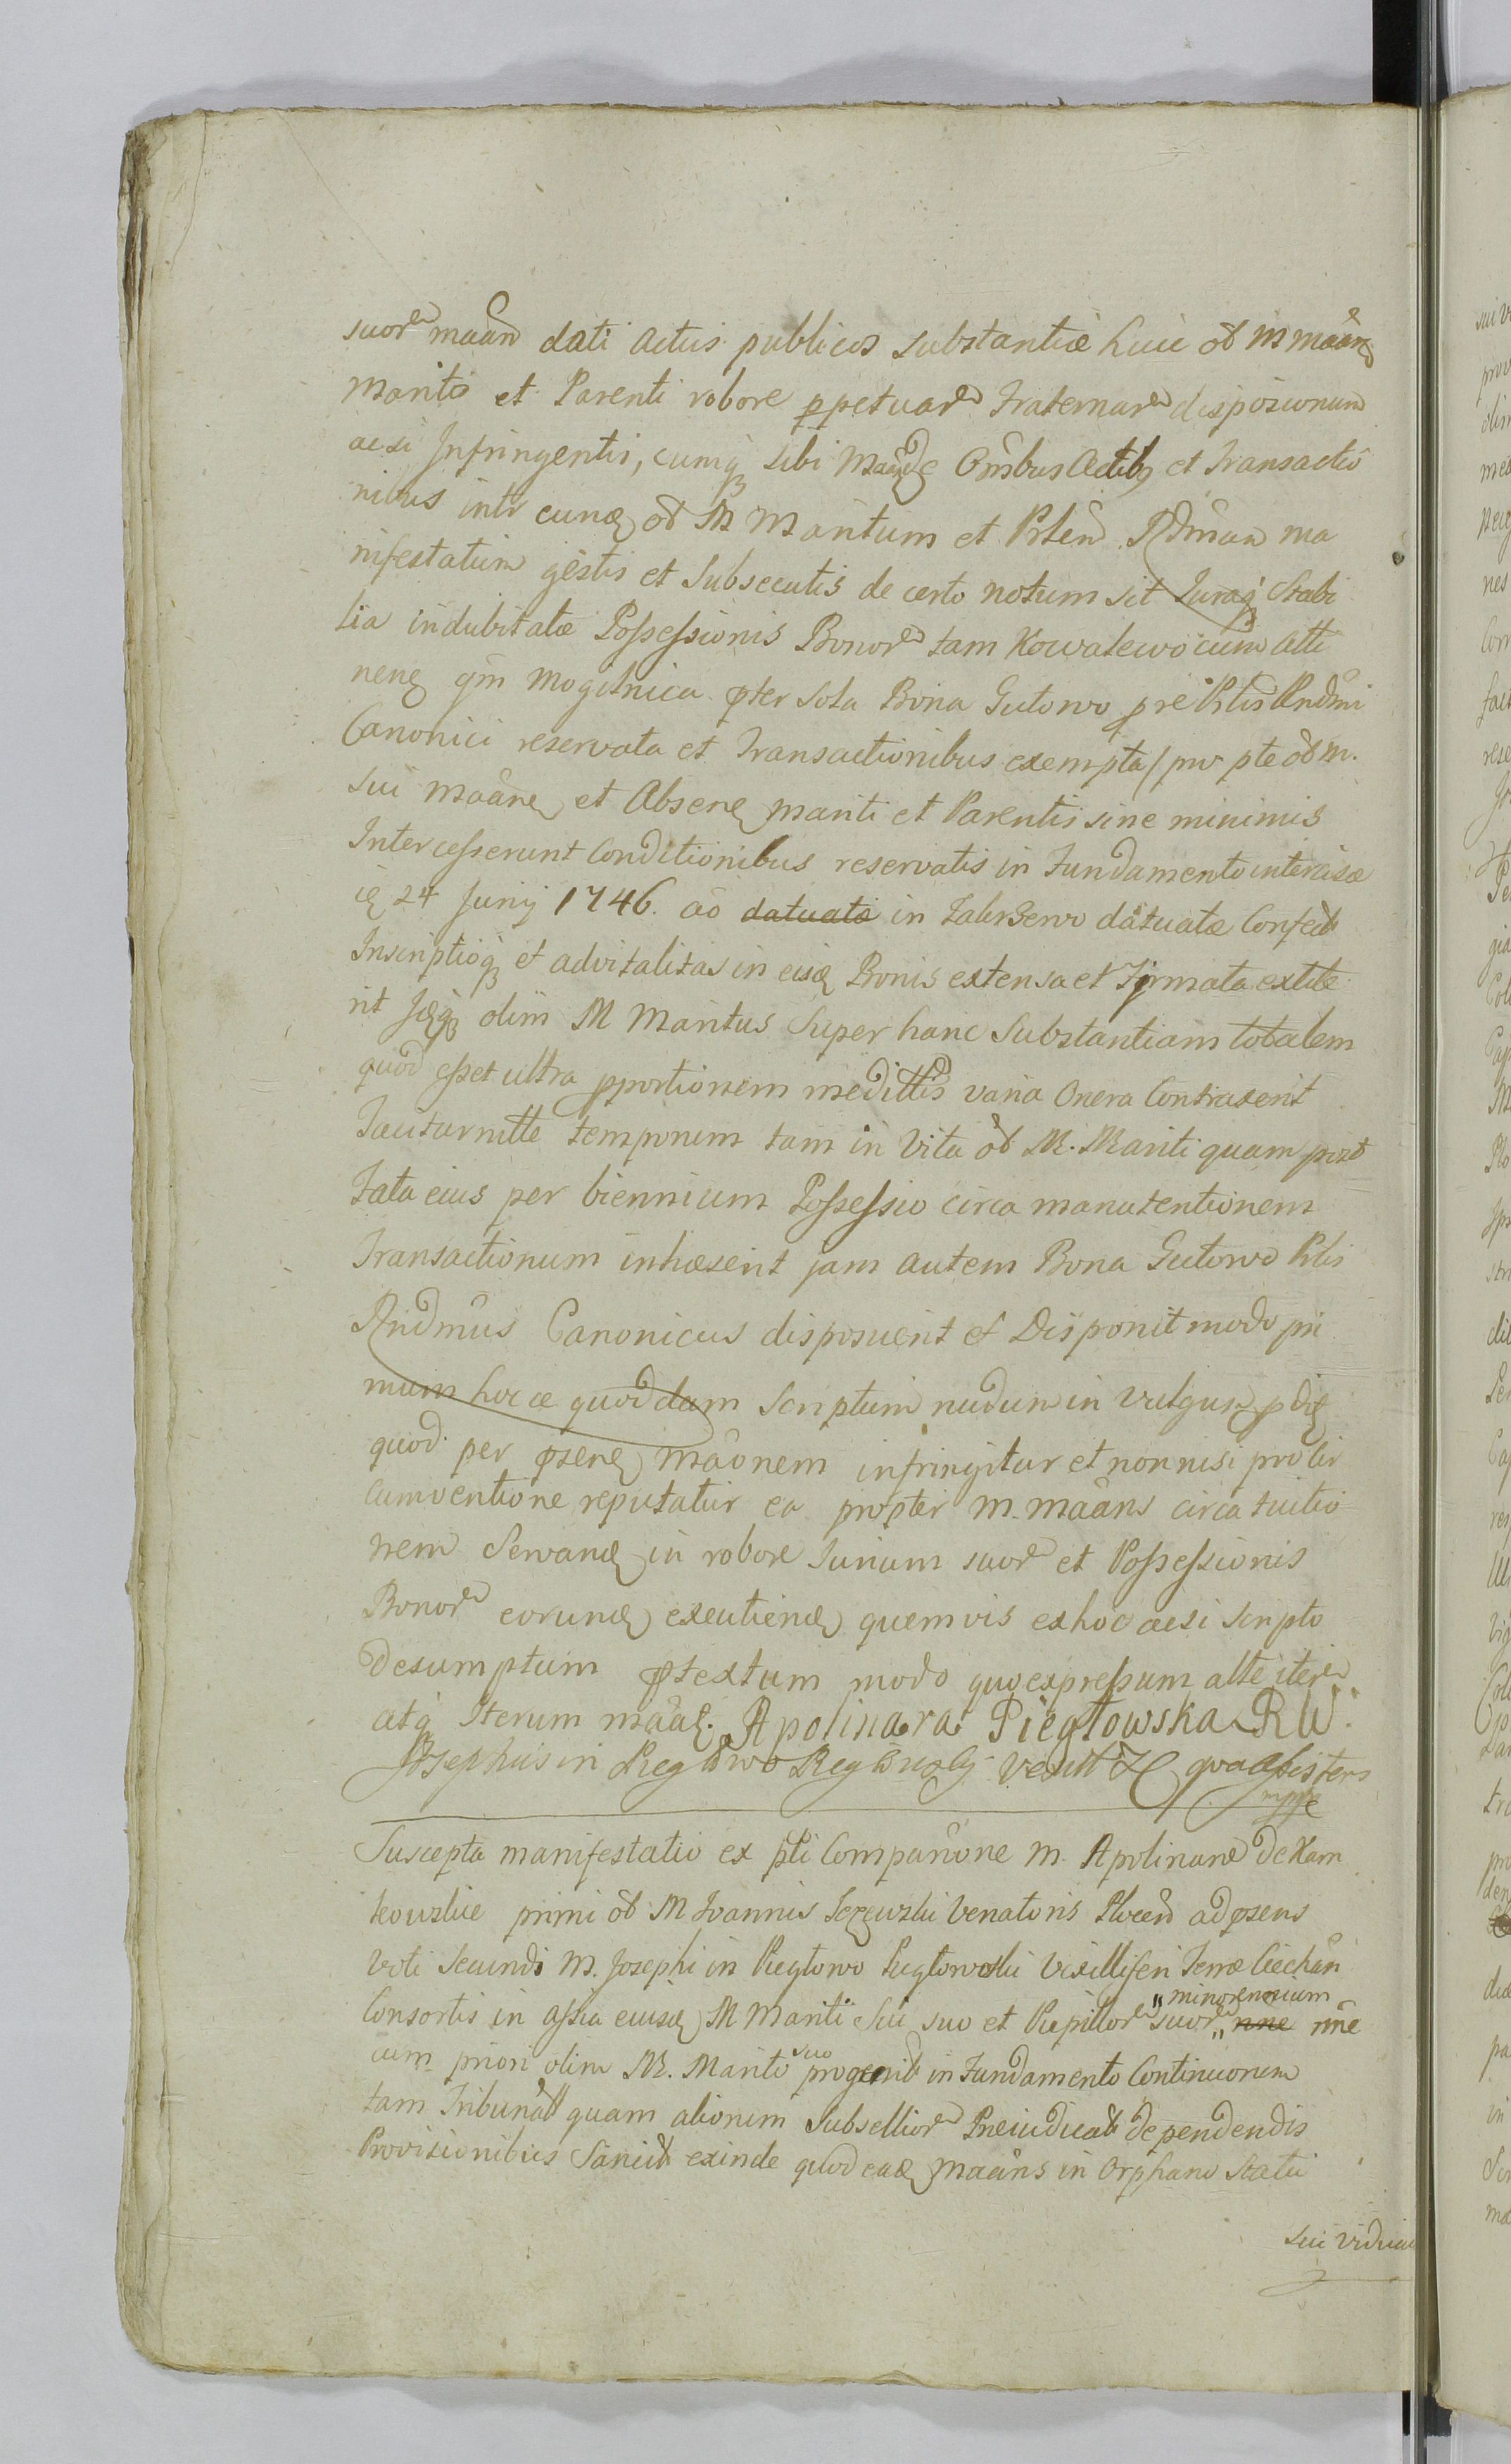 suor maan dati actus publicos substantiæ huic ob M maane
Marito et Parenti robore ppetuar Fraternar disposionum
acsi Infringentis, cumq sibi Maande Omibus Actibq et Transactio
nibus intr eunde ob M Maritum et Prlem Rdmum ma
nifestatum gestis et Subsecutis de certo notum sit Juraq Stabi
lia indubitatæ Possessionis Bonor tam Kowalewo cum atti
nene qm Mogilnica pter sola Bona Gutowo pre Plis Rndmi
Canonici reservata et Transactionibus exempta/ pro pte ob m.
sui maane et Absene mariti et Parentis sine minimis
Intercesserunt Conditionibus reservatis in Fundamento intercisæ
ie 24 Junij 1746. ao datuatæ in datuatæ Confect
Inscriptioq et advitalitas in eisde Bonis extensa et Firmata extite
rit Isq olim M Maritus Super hanc Substantiam totalem
quod esset ultra pportionem medittis varia Onera Contraxerit
Taciturnitte temporum tam in Vita ob M. Mariti quam post
Fata eius per biennium Possessio circa manutentionem
Transactionum inhæserit jam autem Bona Gutowo Plis
Rndmus Canonicus disposuerit et Disponit modo pri
mum hocce quoddam Scriptum nudum in vulgus pdit
quod per psene maonem infringitur et nonnisi pro cir
cumventione reputatur ea propter M. maans circa tuitio
nem Servande in robore Jurium suor et Possessionis
Bonor eorunde excutiende quemvis ex hoc acsi scripto
Desumptum ptextum modo quo expressum alte iter
atq Iterum maat. Apolinara Piegłowska R W.
Josephus in Pieglowo Vexill Z C qua assistens
mppe
Suscepta manifestatio ex pti Comparione M. Apolinaræ de Kar
kowskie primi ob M Joannis Jezewski Venatoris Plocen ad psens
Voti Secundi M. Josephi in Pieglowo Pieglowski Vexilliferi Terræ Ciechan
Consortis in assia eiusde M Mariti Sui suo et Pupillor suor „minorennium „ nne nne
cum priori olim M. Marito suo progenit in Fundamento Continuorum
tam Tribunall quam aliorum Subsellior Præiudicat Dependendis
Provisionibus Sancit exinde quod eade Maans in Orphano Statu
sui viduali